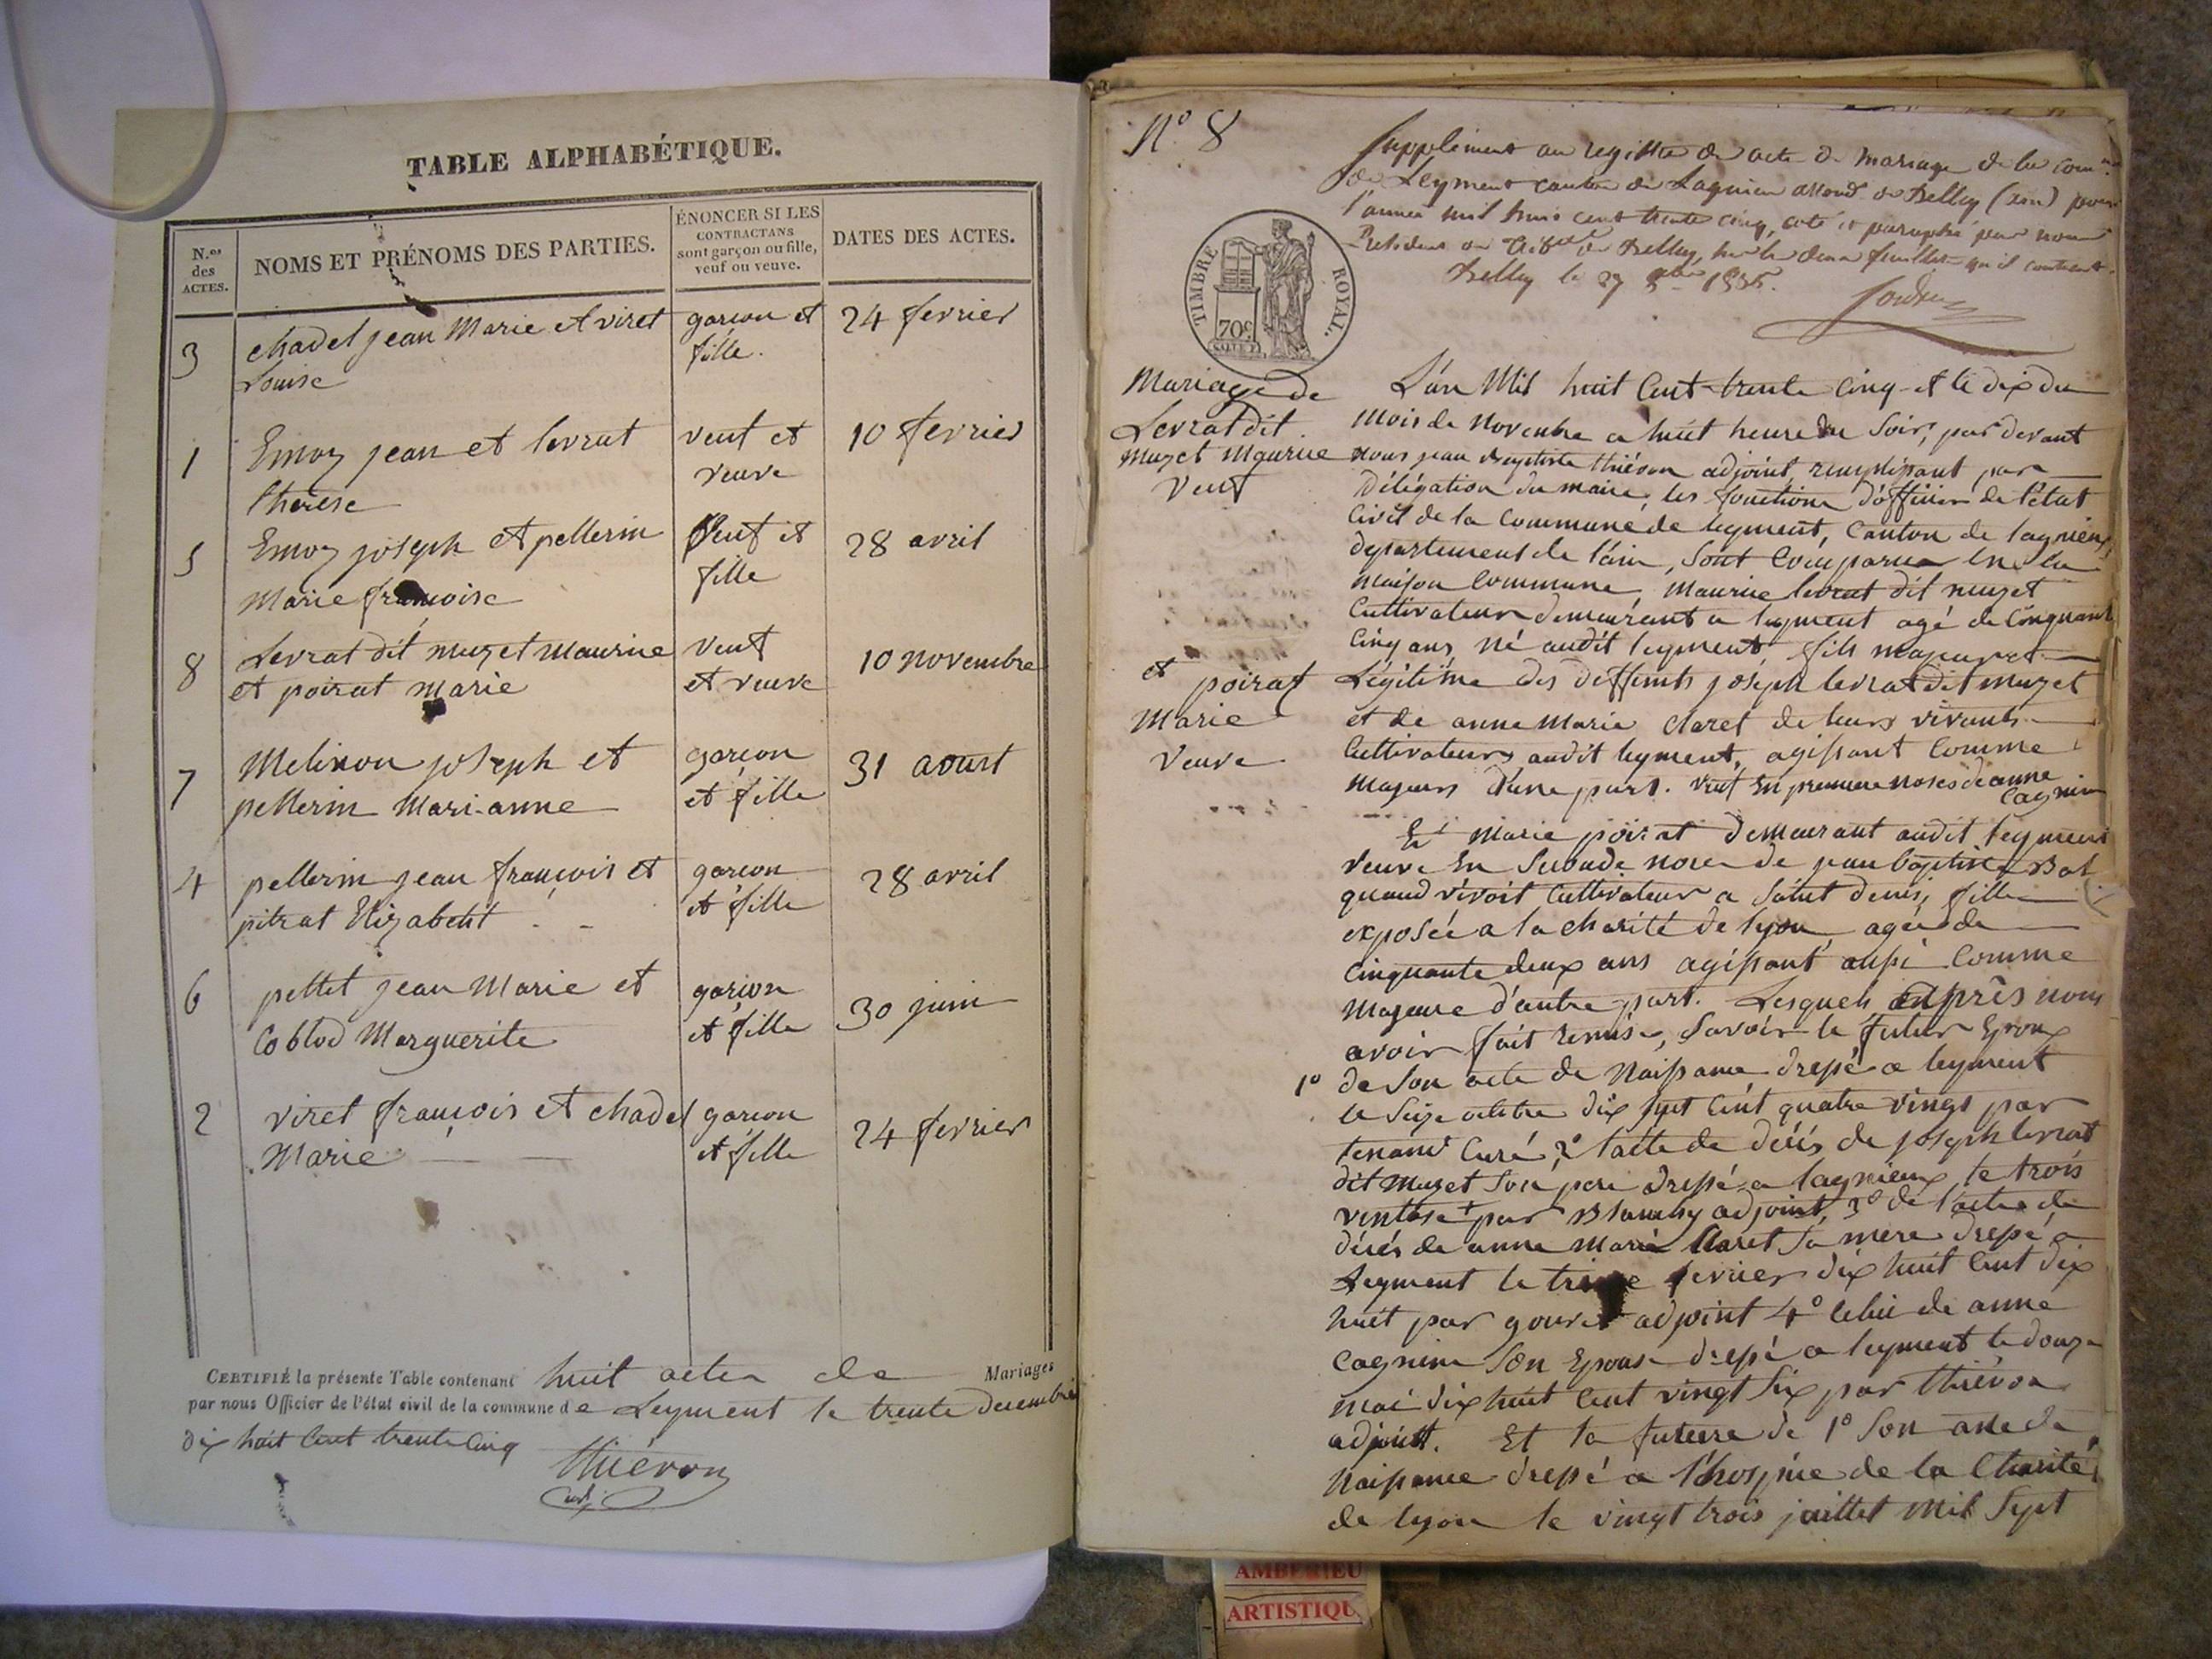 TABLE ALPHABÉTIQUE.
N.os des ACTES.
NOMS ET PRÉNOMS DES PARTIES.
ÉNONCER SI LES
CONTRACTANS
sont garçon ou fille,
veuf ou veuve.
DATES DES ACTES.
3 chadel jean Marie et viret garçon et 24 fevrier
Louise fille.
1 Emoz jean et levrat veuf et 10 fevrier
therese veuve
5 Emoz joseph et pellerin veuf et 28 avril
Marie francoise fille
8 Levrat dit muzet Maurice veuf 10 novembre
et poirat marie et veuve
7 Melinon joseph et garçon 31 aoust
pellerin Mari-anne et fille
4 pellerin jean françois et garcon 28 avril
pitrat Elizabeth et fille
6 pettet jean Marie et garçon 30 juin
Coblod Marguerite et fille
2 viret françois et chadel garcon 24 fevrier
Marie et fille
CERTIFIÉ la présente Table contenant huit actes de Mariages
par nous Officier de l'état civil de la commune de Leyment le trente decembre
dix huit cent trente cinq
thiévon
adj
N° 8
Supplément au registre de acte de mariage de la com.ne
de Leyment canton de Lagnieu arrond.t de Belley (ain) pour
l'année mil huit cent trente cinq, coté et paraphé par nous
Président du Trib.al de Belley, sur le deux feuillets qu'il contient.
Belley le 27 1835.
TIMBRE ROYAL.
70 c
Mariage de
Levrat dit
muzet Maurice
veuf
et poirat
Marie
veuve
L'an Mil huit Cent trente Cinq et le dix du
mois de Novembre a huit heure du Soir, par devant
nous jean Baptiste thiévon adjoint, remplissant par
délégation du maire, les fonctions d'officier de l'état
Civil de la Commune de leyment, Canton de lagnieu,
departement de l'ain, Sont Comparus en la
maison Commune, Maurice levrat dit muzet
Cultivateur demeurant a leyment agé de Cinquante
Cinq ans, né audit leyment, fils majeur et
Légitime des deffunts joseph levrat dit muzet
et de anne Marie Claret de leurs vivants
Cultivateurs audit leyment, agissant Comme
majeurs d'une part. veuf En premiere noses de anne
Cagnin
Et Marie poirat demeurant audit leyment
veuve En Seconde noce de jean baptiste Bol
quand vivoit Cultivateur a Saint denis, fille
exposée a la charité de lyon, agée de
Cinquante deux ans agissant aussi Comme
Majeure d'autre part. Lesquels après nous
avoir fait remise, Savoir le futur Epoux
1° de Son acte de Naissance dressé a leyment
le Seize octobre dix sept Cent quatre vingt par
tenant Curé, 2° l'acte de décés de joseph levrat
dit Muzet Son pere dressé a lagnieux, le trois
ventose par Blanchy adjoint, 3° de l'acte de
décés de anne Marie Claret Sa mere dressé a
Leyment le fevrier dix huit Cent dix
huit par adjoint 4° Celui de anne
Cagnin Son Epouse dressé a leyment le douze
mai dix huit Cent vingt Six par thiévon
adjoint. Et la future de 1° Son acte de
Naissance dressé a l'hospice de la Charité
de lyon le vingt trois juillet Mil Sept
AMBERIEU
ARTISTIQU